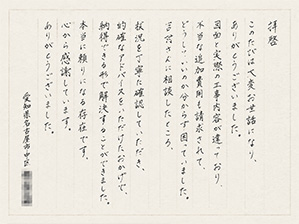 拝啓
このたびは大変お世話になり、
ありがとうございました。
図面と実際の工事内容が違っており、
不当な追加費用も請求されて、
どうしていいか分からず困っていました。
に相談したところ、
状況を丁寧に確認していただき、
的確なアドバイスをいただけたおかげで、
納得できる形で解決することができました。
本当に頼りになる存在です。
心から感謝しています。
ありがとうございました。
愛知県名古屋市中区